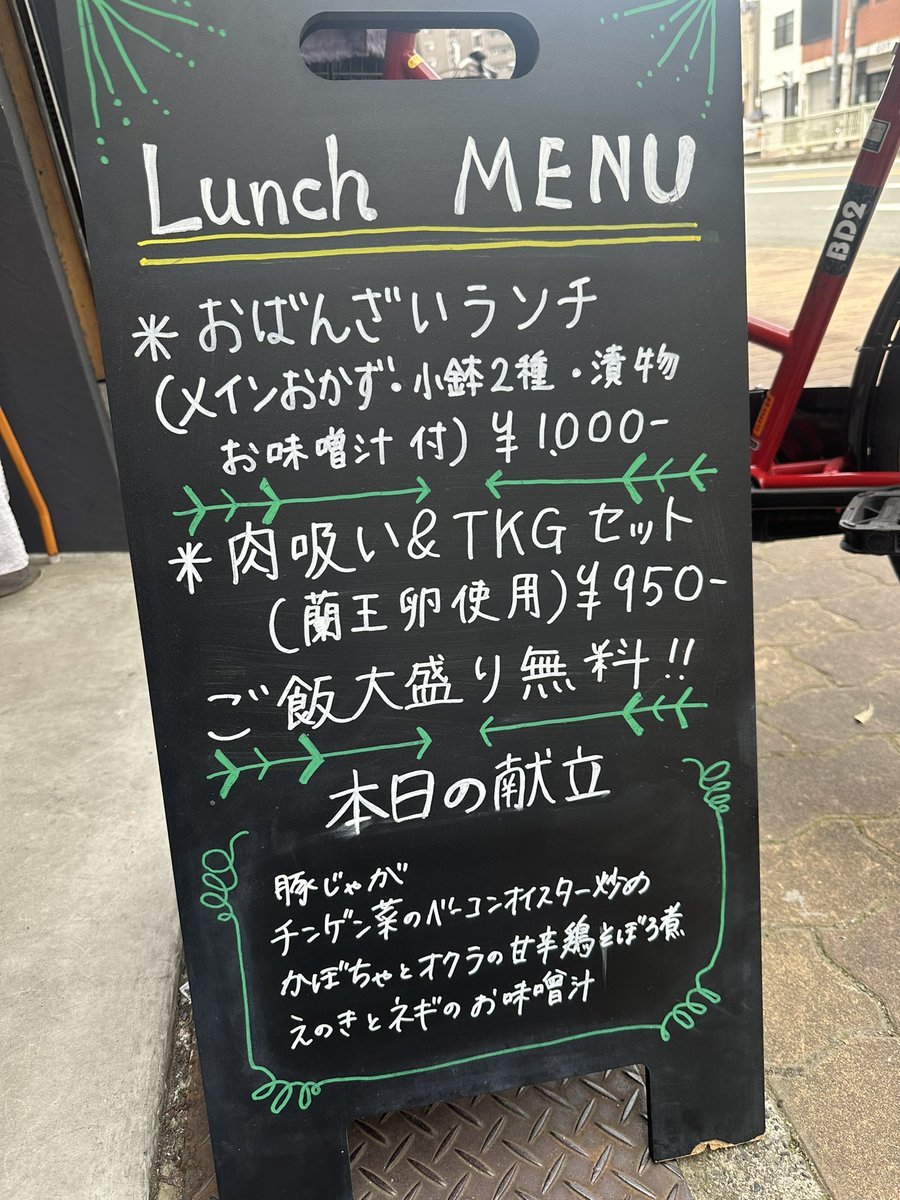 Lunch MENU
*おばんざいランチ
(メインおかず・小鉢2種・漬物
お味噌汁付) ¥1,000-
*肉吸い&TKGセット
(蘭王卵使用)¥950-
ご飯大盛り無料!!
本日の献立
豚じゃが
チンゲン菜のベーコンオイスター炒め
かぼちゃとオクラの甘辛鶏そぼろ煮
えのきとネギのお味噌汁
BD2